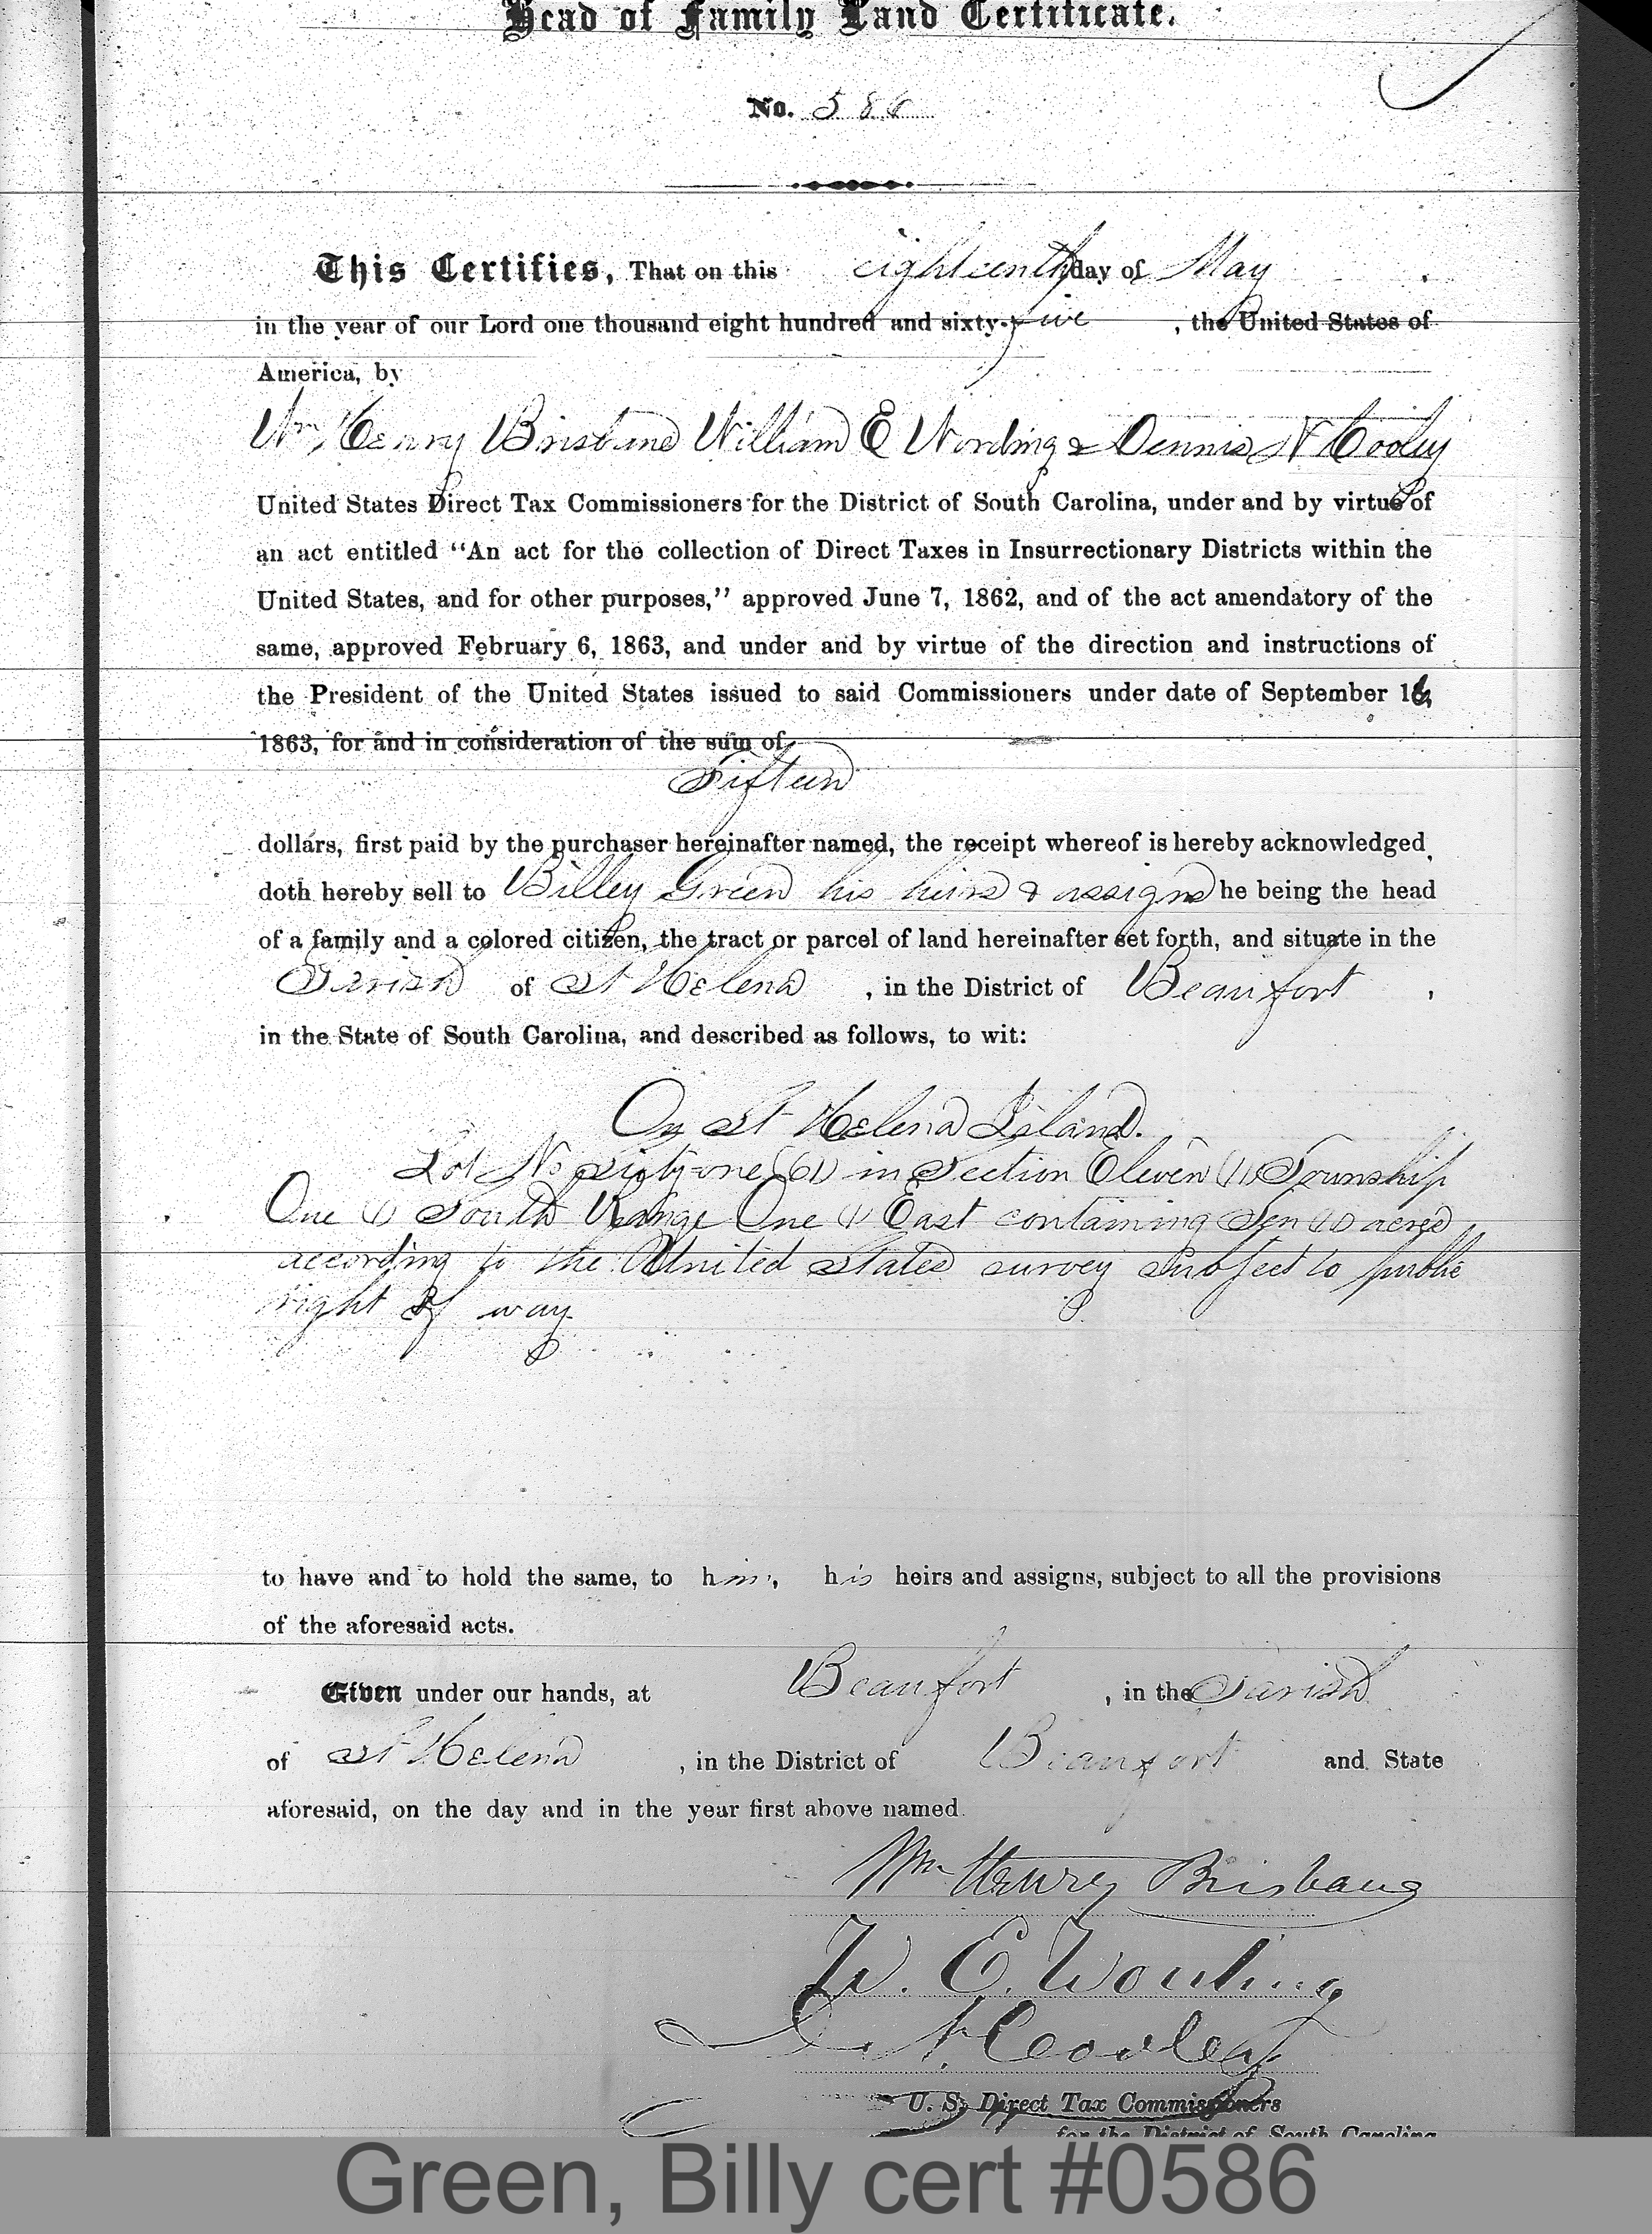 Head of Family Land Certificate.
No. 586
This Certifies, That on this eighteenth day of May
in the year of our Lord one thousand eight hundred and sixty-five, the United States of
America, by
Wm Henry Brisbane William E Wording & Dennis N Cooley
United States Direct Tax Commissioners for the District of South Carolina, under and by virtue of
an act entitled “An act for the collection of Direct Taxes in Insurrectionary Districts within the
United States, and for other purposes,” approved June 7, 1862, and of the act amendatory of the
same, approved February 6, 1863, and under and by virtue of the direction and instructions of
the President of the United States issued to said Commissioners under date of September 16,
1863, for and in consideration of the sum of
Fifteen
dollars, first paid by the purchaser hereinafter named, the receipt whereof is hereby acknowledged
doth hereby sell to Billey Green his heirs & assigns he being the head
of a family and a colored citizen, the tract or parcel of land hereinafter set forth, and situate in the
Parish of St Helena, in the District of Beaufort,
in the State of South Carolina, and described as follows, to wit:
On St Helena Island.
Lot No sixty-one (61) in Section Eleven (11) Township
One (1) South Range One (1) East containing Ten (10) acres
according to the United States survey subject to public
right of way
to have and to hold the same, to him, his heirs and assigns, subject to all the provisions
of the aforesaid acts.
Given under our hands, at Beaufort, in the Parish
of St Helena, in the District of Beaufort and State
aforesaid, on the day and in the year first above named.
Wm Henry Brisbane
W. E. Wording
D. N. Cooley
U. S. Direct Tax Commissioners
for the District of South Carolina
Green, Billy cert #0586